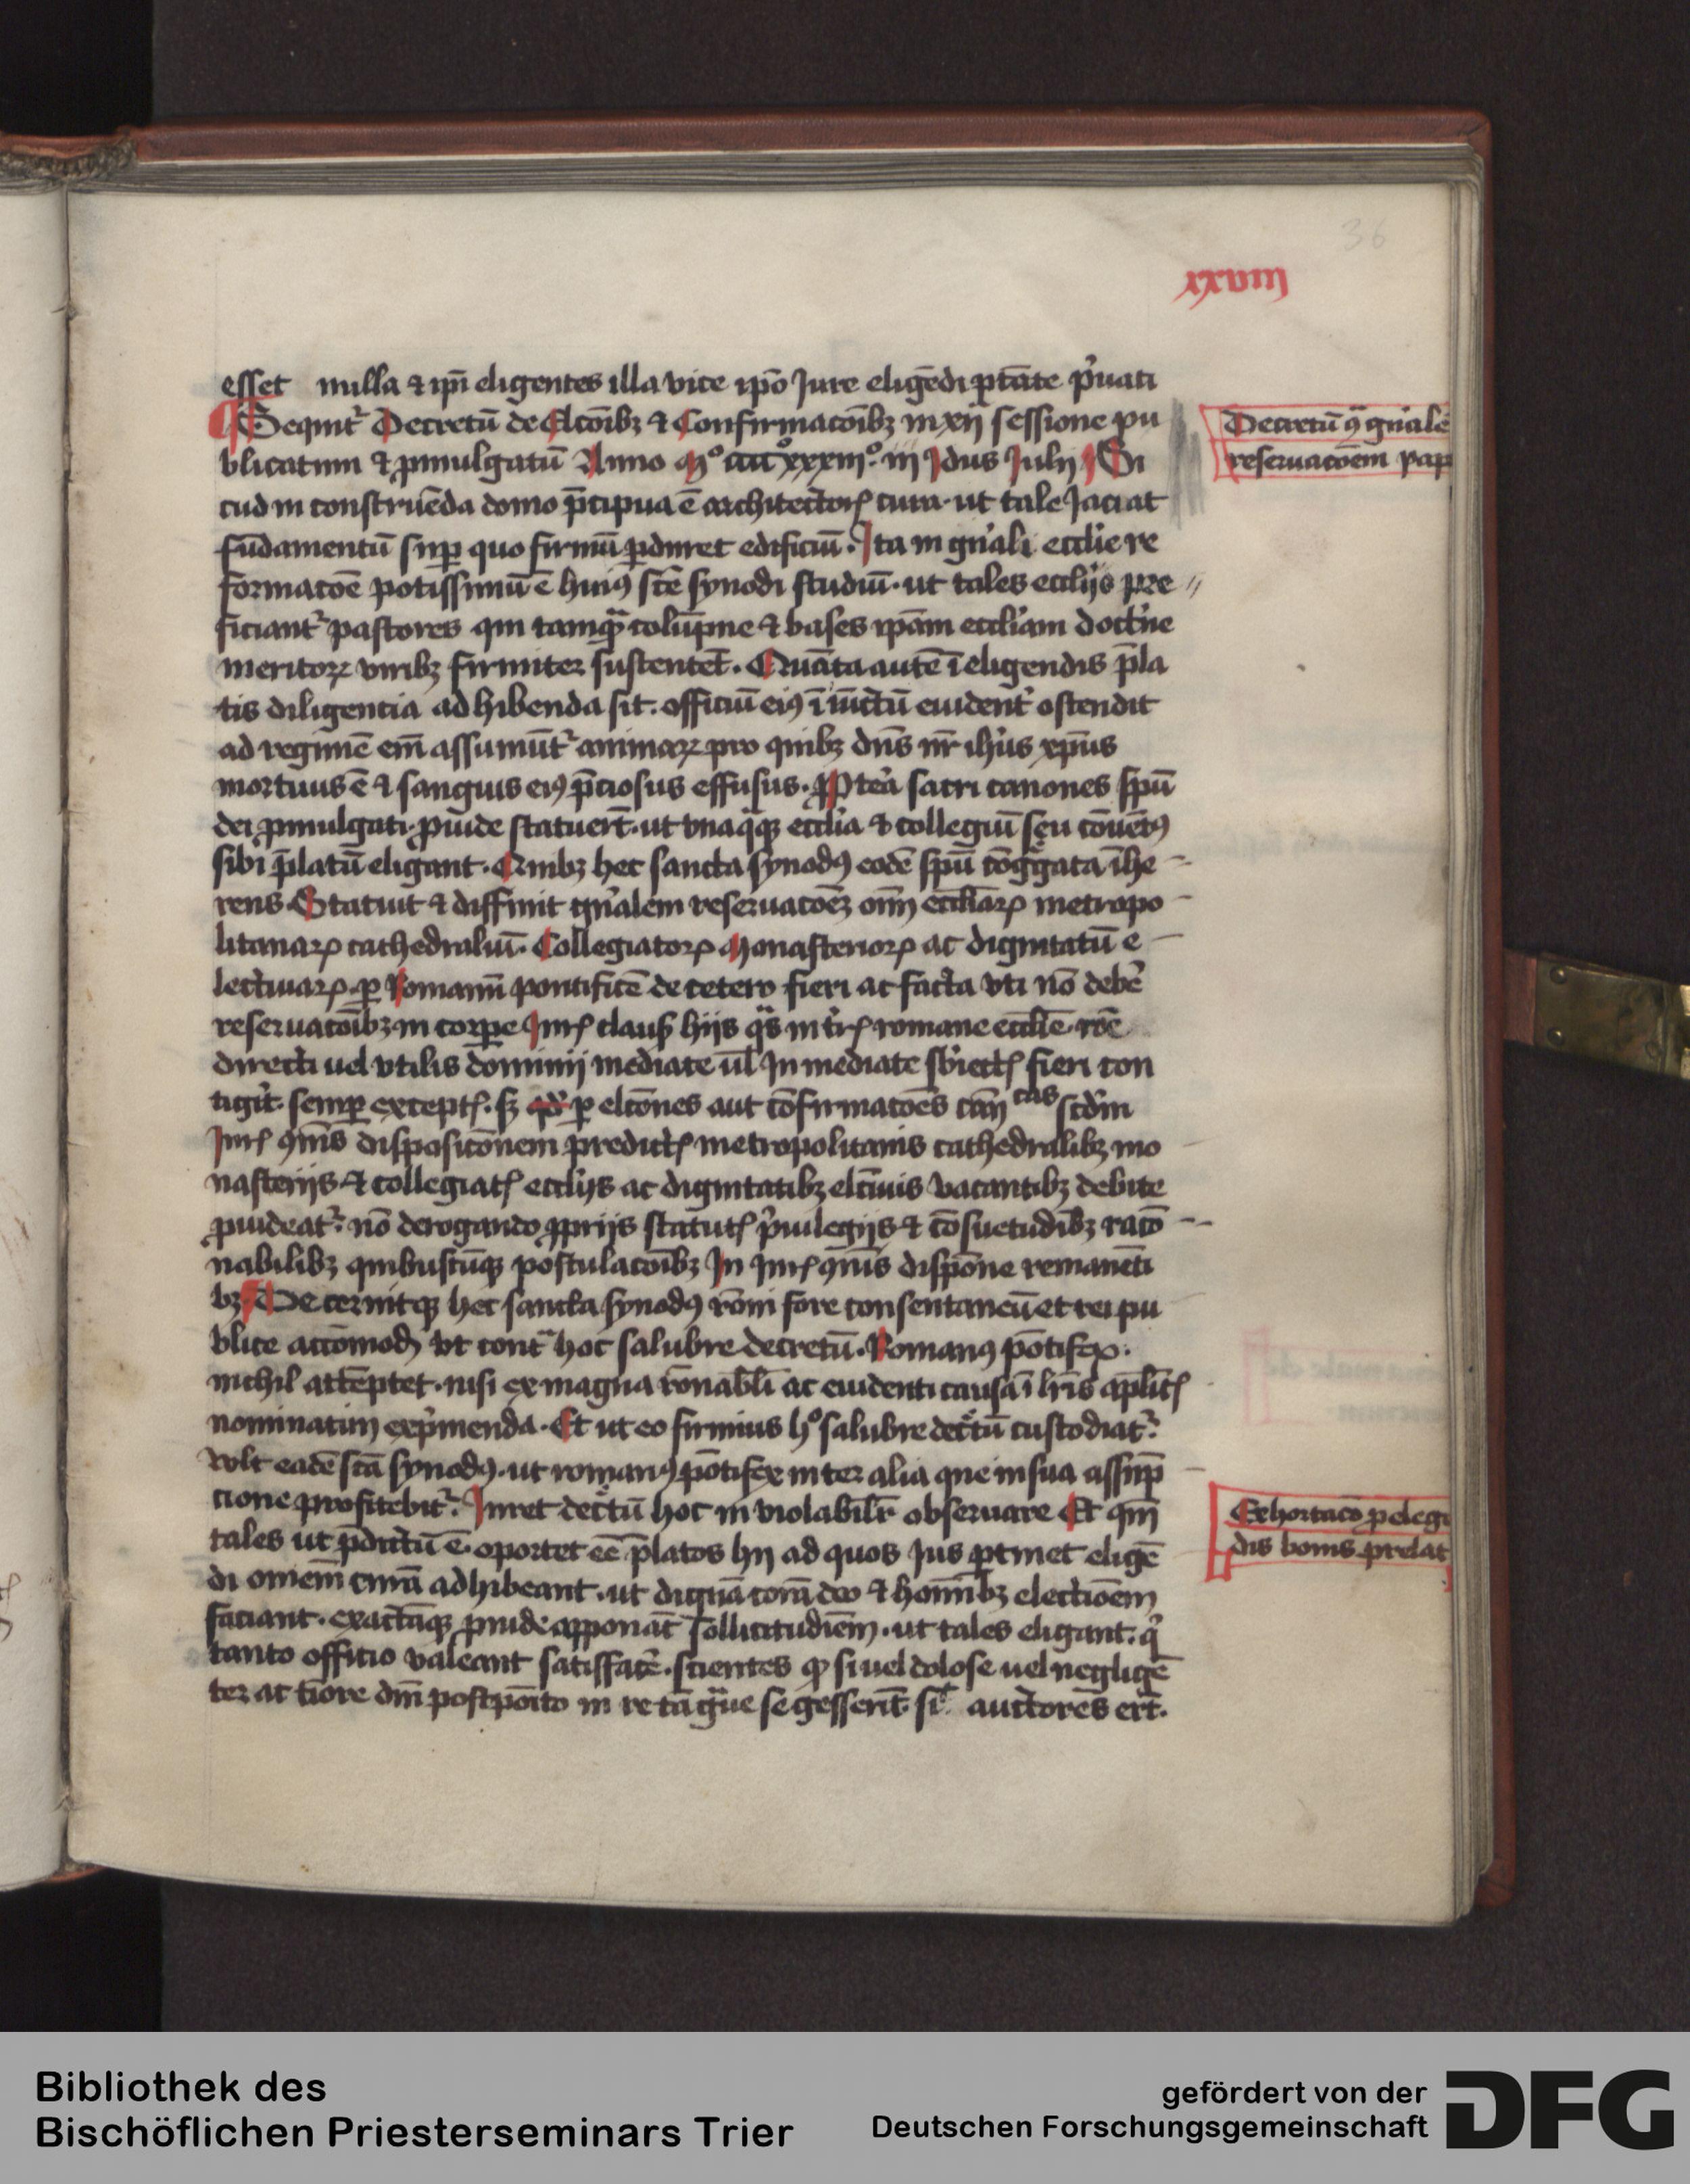 36
xxviij
esset nulla ⁊ ipi̅ eligentes illa vice ip̅o Jure elige̅di ptate p̓uati
Sequit᷑ Decretu̅ de Elco̅ibꝫ ⁊ Confirmaco̅ibꝫ in xij sessione pu
blicatum ⁊ ꝓmulgatu̅ Anno Mº ccccºxxxiijº iij Idus Julij Si
cud in construe̅da domo p̅cipua e̅ architectoꝝ cura ut tale Jaciat
fu̅damentu̅ suꝑ quo firmu̅ ꝑduret edificiu̅. Ita in gn̓ali eccl̓ie re
formaco̅e potissimu̅ e̅ huiꝰ sc̅e synodi studiu̅. ut tales eccl̓ijs pre
ficiant᷑ pastores qui tamqᷓ colu̅pne ⁊ bases ip̅am eccl̓iam doct̓ne
meritoꝝ viribꝫ firmiter sustente̅t. Qua̅ta aute̅ i̅ eligendis p̅la
tis diligencia adhibenda sit. officiu̅ eiꝰ i̅iu̅ctu̅ euident᷑ ostendit
ad regime̅ em̅ assumu̅t᷑ animaꝝ pro quibꝫ dn̅s nr̅ ihu̅s xp̅us
mortuus e̅ ⁊ sanguis eiꝰ p̅ciosus effusus. Ppt̓ea sacri canones spu̅
dei ꝓmulgati ꝓuide statuer̅t. ut vnaq̓qꝫ eccl̓ia ⁊ collegiu̅ seu co̅ue̅tꝰ
sibi p̅latu̅ eligant. Quibꝫ hec sancta synodꝰ eode̅ spu̅ co̅gᷓgata i̅he
rens Statuit ⁊ diffinit gn̓alem reseruaco̅eꝫ om̅i eccl̓iaꝝ metropo
litanaꝝ cathedraliu̅. Collegiatoꝝ Monasterioꝝ ac dignitatu̅ e
lectiuaꝝ. ꝑ Romanu̅ pontifice̅ de cetero fieri ac facta vti no̅ debe̅
reseruaco̅ibꝫ in corꝑe Juris claus̓ hijs qᷓs in t̓ris romane eccl̓ie ro̅e
directi uel vtilis dominij mediate ul̅ Inmediate sb̓iectis fieri con
tigit. semꝑ exceptis. sꝫ ꝑ elco̅nes aut co̅firmaco̅es cas scd̓m
Juris ꝯmu̅is disposico̅nem predictis metropolitanis cathedralibꝫ mo
nasterijs ⁊ collegiatis eccl̓ijs ac dignitatibꝫ elc̅iuis vacantibꝫ debite
ꝓuideat᷑. no̅ derogando ꝓprijs statutis p̓uilegijs ⁊ co̅suetudi̅bꝫ raco̅
nabilibꝫ quibuscu̅qꝫ postulaco̅ibꝫ In Juris ꝯmu̅is dispo̅ne remane̅ti
bꝫ. Decernitqꝫ hec sancta synodꝰ ro̅ni fore consentaneu̅ et rei pu
blice acco̅mod̅ vt contᷓ hoc salubre decretu̅. Romanꝰ po̅tifex.
nichil atte̅ptet. nisi ex magna ro̅nabl̅i ac euidenti causa i̅ lr̅is apl̅icis
nominatim exp̓menda. Et ut eo firmius hº salubre dec᷑tu̅ custodiat᷑.
volt eade̅ sc̅a synodꝰ. ut romanꝰ po̅tifex inter alia que in sua assup̅
cione profitebit᷑. Juret dec᷑tu̅ hoc inviolabilit᷑ obseruare Et qm̅
tales ut p̅dictu̅ e̅. oportet ee̅ p̅latos hij ad quos Jus ꝑtinet elige̅
di omiem̅ cura̅ adhibeant. ut digna̅ cora̅ deo ⁊ homi̅bꝫ electio̅em
faciant. exacta̅qꝫ ꝓuide apponat̅ sollicitudie̅m. ut tales eligant. q̓
tanto officio valeant satisfac̅e. scientes ꝙ si uel dolose uel neglige̅
ter ac ti̅ore dei̅ postpo̅ito in re ta̅ gᷓue se gesseri̅t. sic̅ auctores er̅t.
Decretu̅ ꝯ gn̓ale̅
reseruaco̅em pap
Exhortaco̅ ꝑ elege̅
dis bonis prelat
Bibliothek des
Bischöflichen Priesterseminars Trier
gefördert von der
Deutschen Forschungsgemeinschaft
DFG